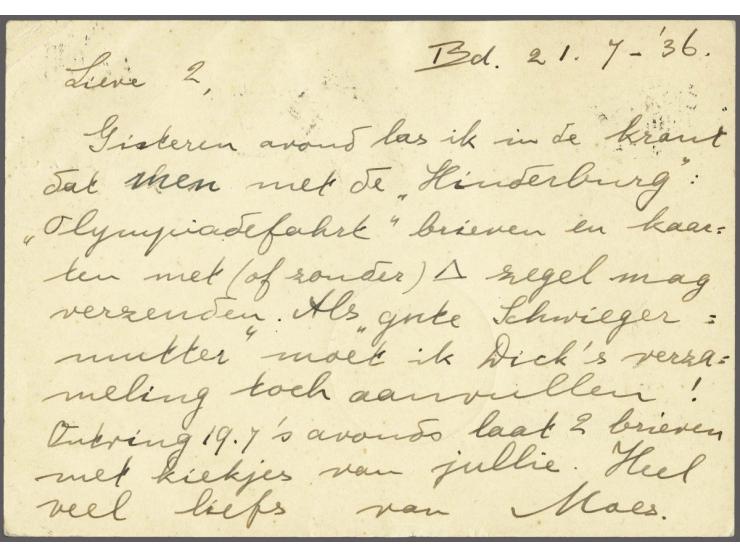 Bd. 21. 7-'36.
Lieve 2,
Gisteren avond las ik in de krant
dat men met de „Hinderburg":
„Olympiadefahrt" brieven en kaar=
ten met (of zonder) △ zegel mag
verzenden. Als „gute Schwieger=
mutter" moet ik Dick's verza=
meling toch aanvullen!
Ontving 19.7 's avonds laat 2 brieven
met kiekjes van jullie. Heel
veel liefs van Moes.